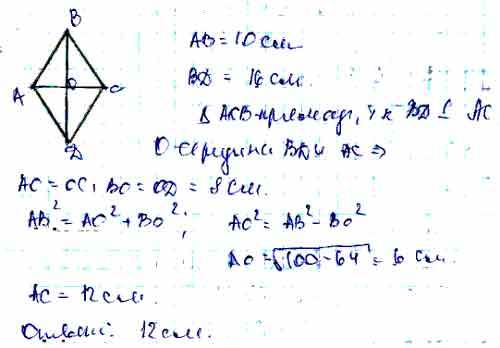 B
A O C
D
AB = 10 см
BD = 16 см.
Δ AOB - прямоуг, т.к BD ⊥ AC
O - середина BD и AC ⇒
AO = OC, BO = OD = 8 см.
AB² = AO² + BO²; AO² = AB² - BO²
AO = √100 - 64 = 6 см.
AC = 12 см.
Ответ: 12 см.